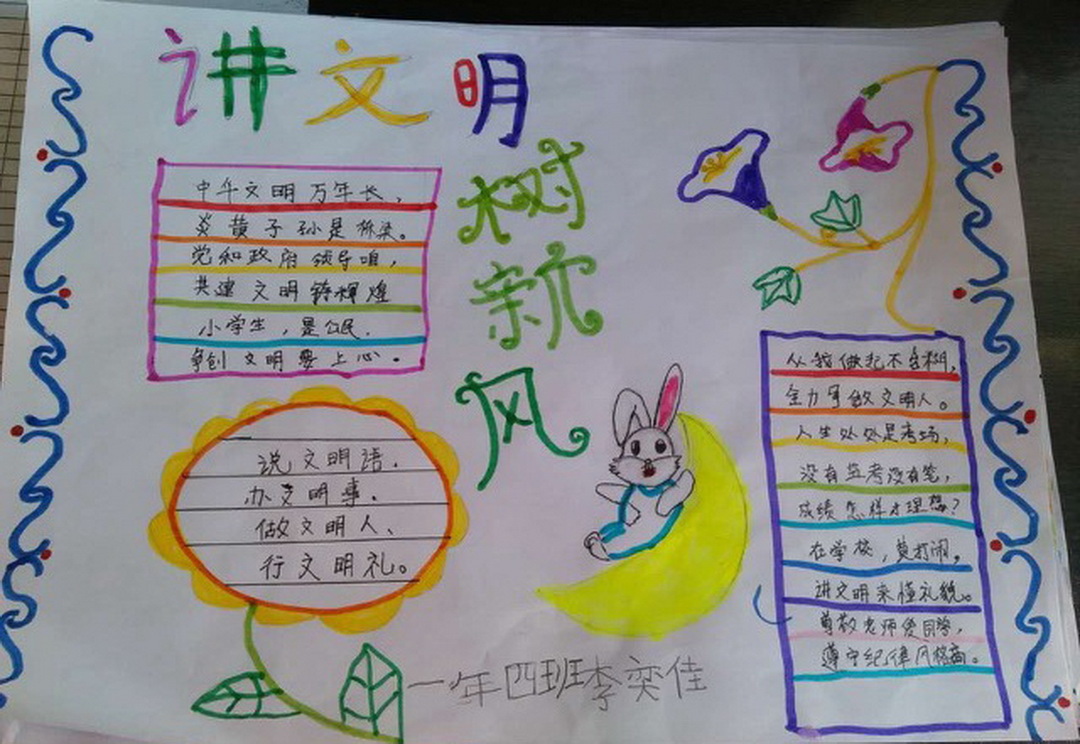 讲文明
树新风
中午文明万年长，
炎黄子孙是桥梁。
党和政府领导咱，
共建文明铸辉煌
小学生，是公民．
争创文明要上心。
说文明语．
办文明事．
做文明人、
行文明礼。
从我做起不含糊，
全力争做文明人。
人生处处是考场，
没有监考没有笔，
成绩怎样才理想？
在学校，莫打闹，
讲文明来懂礼貌。
尊敬老师爱同学，
遵守纪律风格高。
一年四班李奕佳